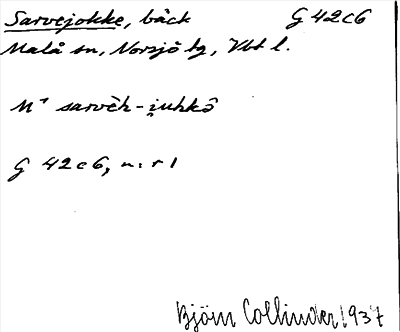 Sarvejokke, bäck G 42c6
Malå sn, Norsjö tg, Vbt l.
M¹ sarvēh-i̯uhkô
G 42c6, n:r 1
Björn Collinder 1937